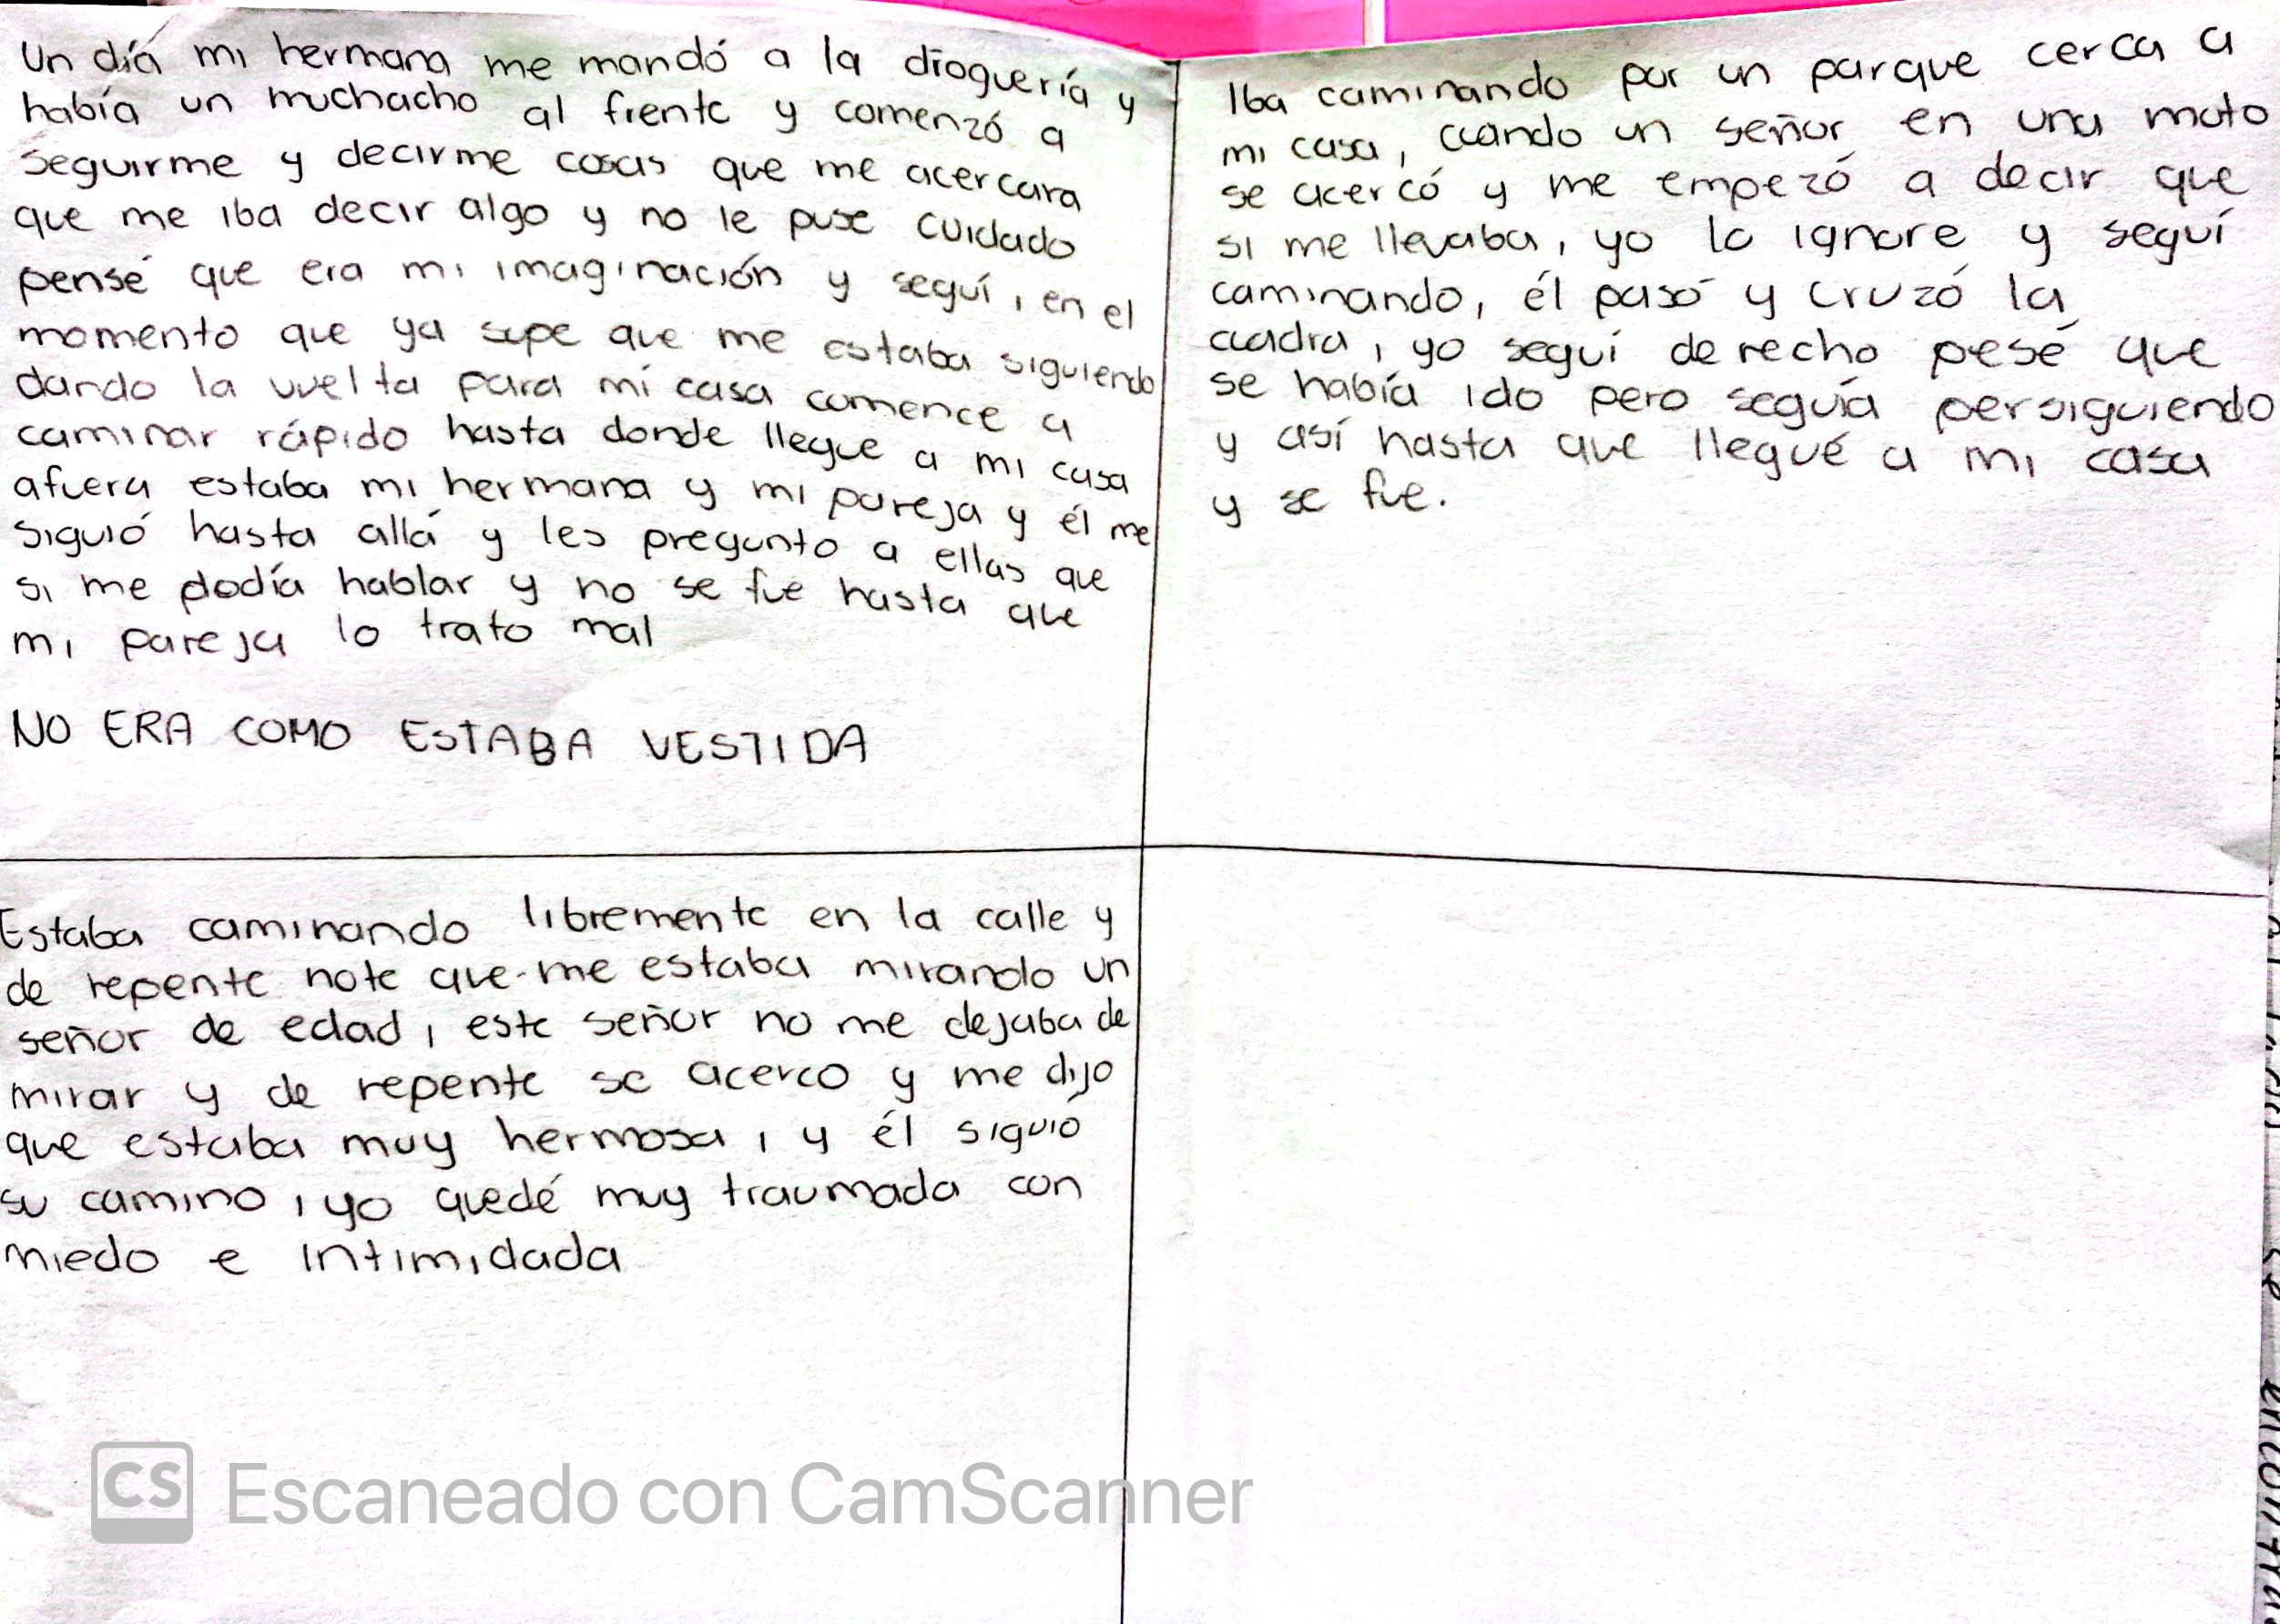 Un día mi hermana me mandó a la droguería y
había un muchacho al frente y comenzó a
seguirme y decirme cosas que me acercara
que me iba decir algo y no le puse cuidado
pensé que era mi imaginación y seguí, en el
momento que ya supe que me estaba siguiendo
dando la vuelta para mi casa comence a
caminar rápido hasta donde llegue a mi casa
afuera estaba mi hermana y mi pareja y él me
siguió hasta allá y les pregunto a ellas que
si me podía hablar y no se fue hasta que
mi pareja lo trato mal
NO ERA COMO ESTABA VESTIDA
Iba caminando por un parque cerca a
mi casa, cuando un señor en una moto
se acercó y me empezó a decir que
si me llevaba, yo lo ignore y seguí
caminando, él pasó y cruzó la
cuadra, yo seguí derecho pesé que
se había ido pero seguía persiguiendo
y así hasta que llegué a mi casa
y se fue.
Estaba caminando libremente en la calle y
de repente note que me estaba mirando un
señor de edad, este señor no me dejaba de
mirar y de repente se acerco y me dijo
que estaba muy hermosa, y él siguió
su camino, yo quedé muy traumada con
miedo e intimidada
CS Escaneado con CamScanner